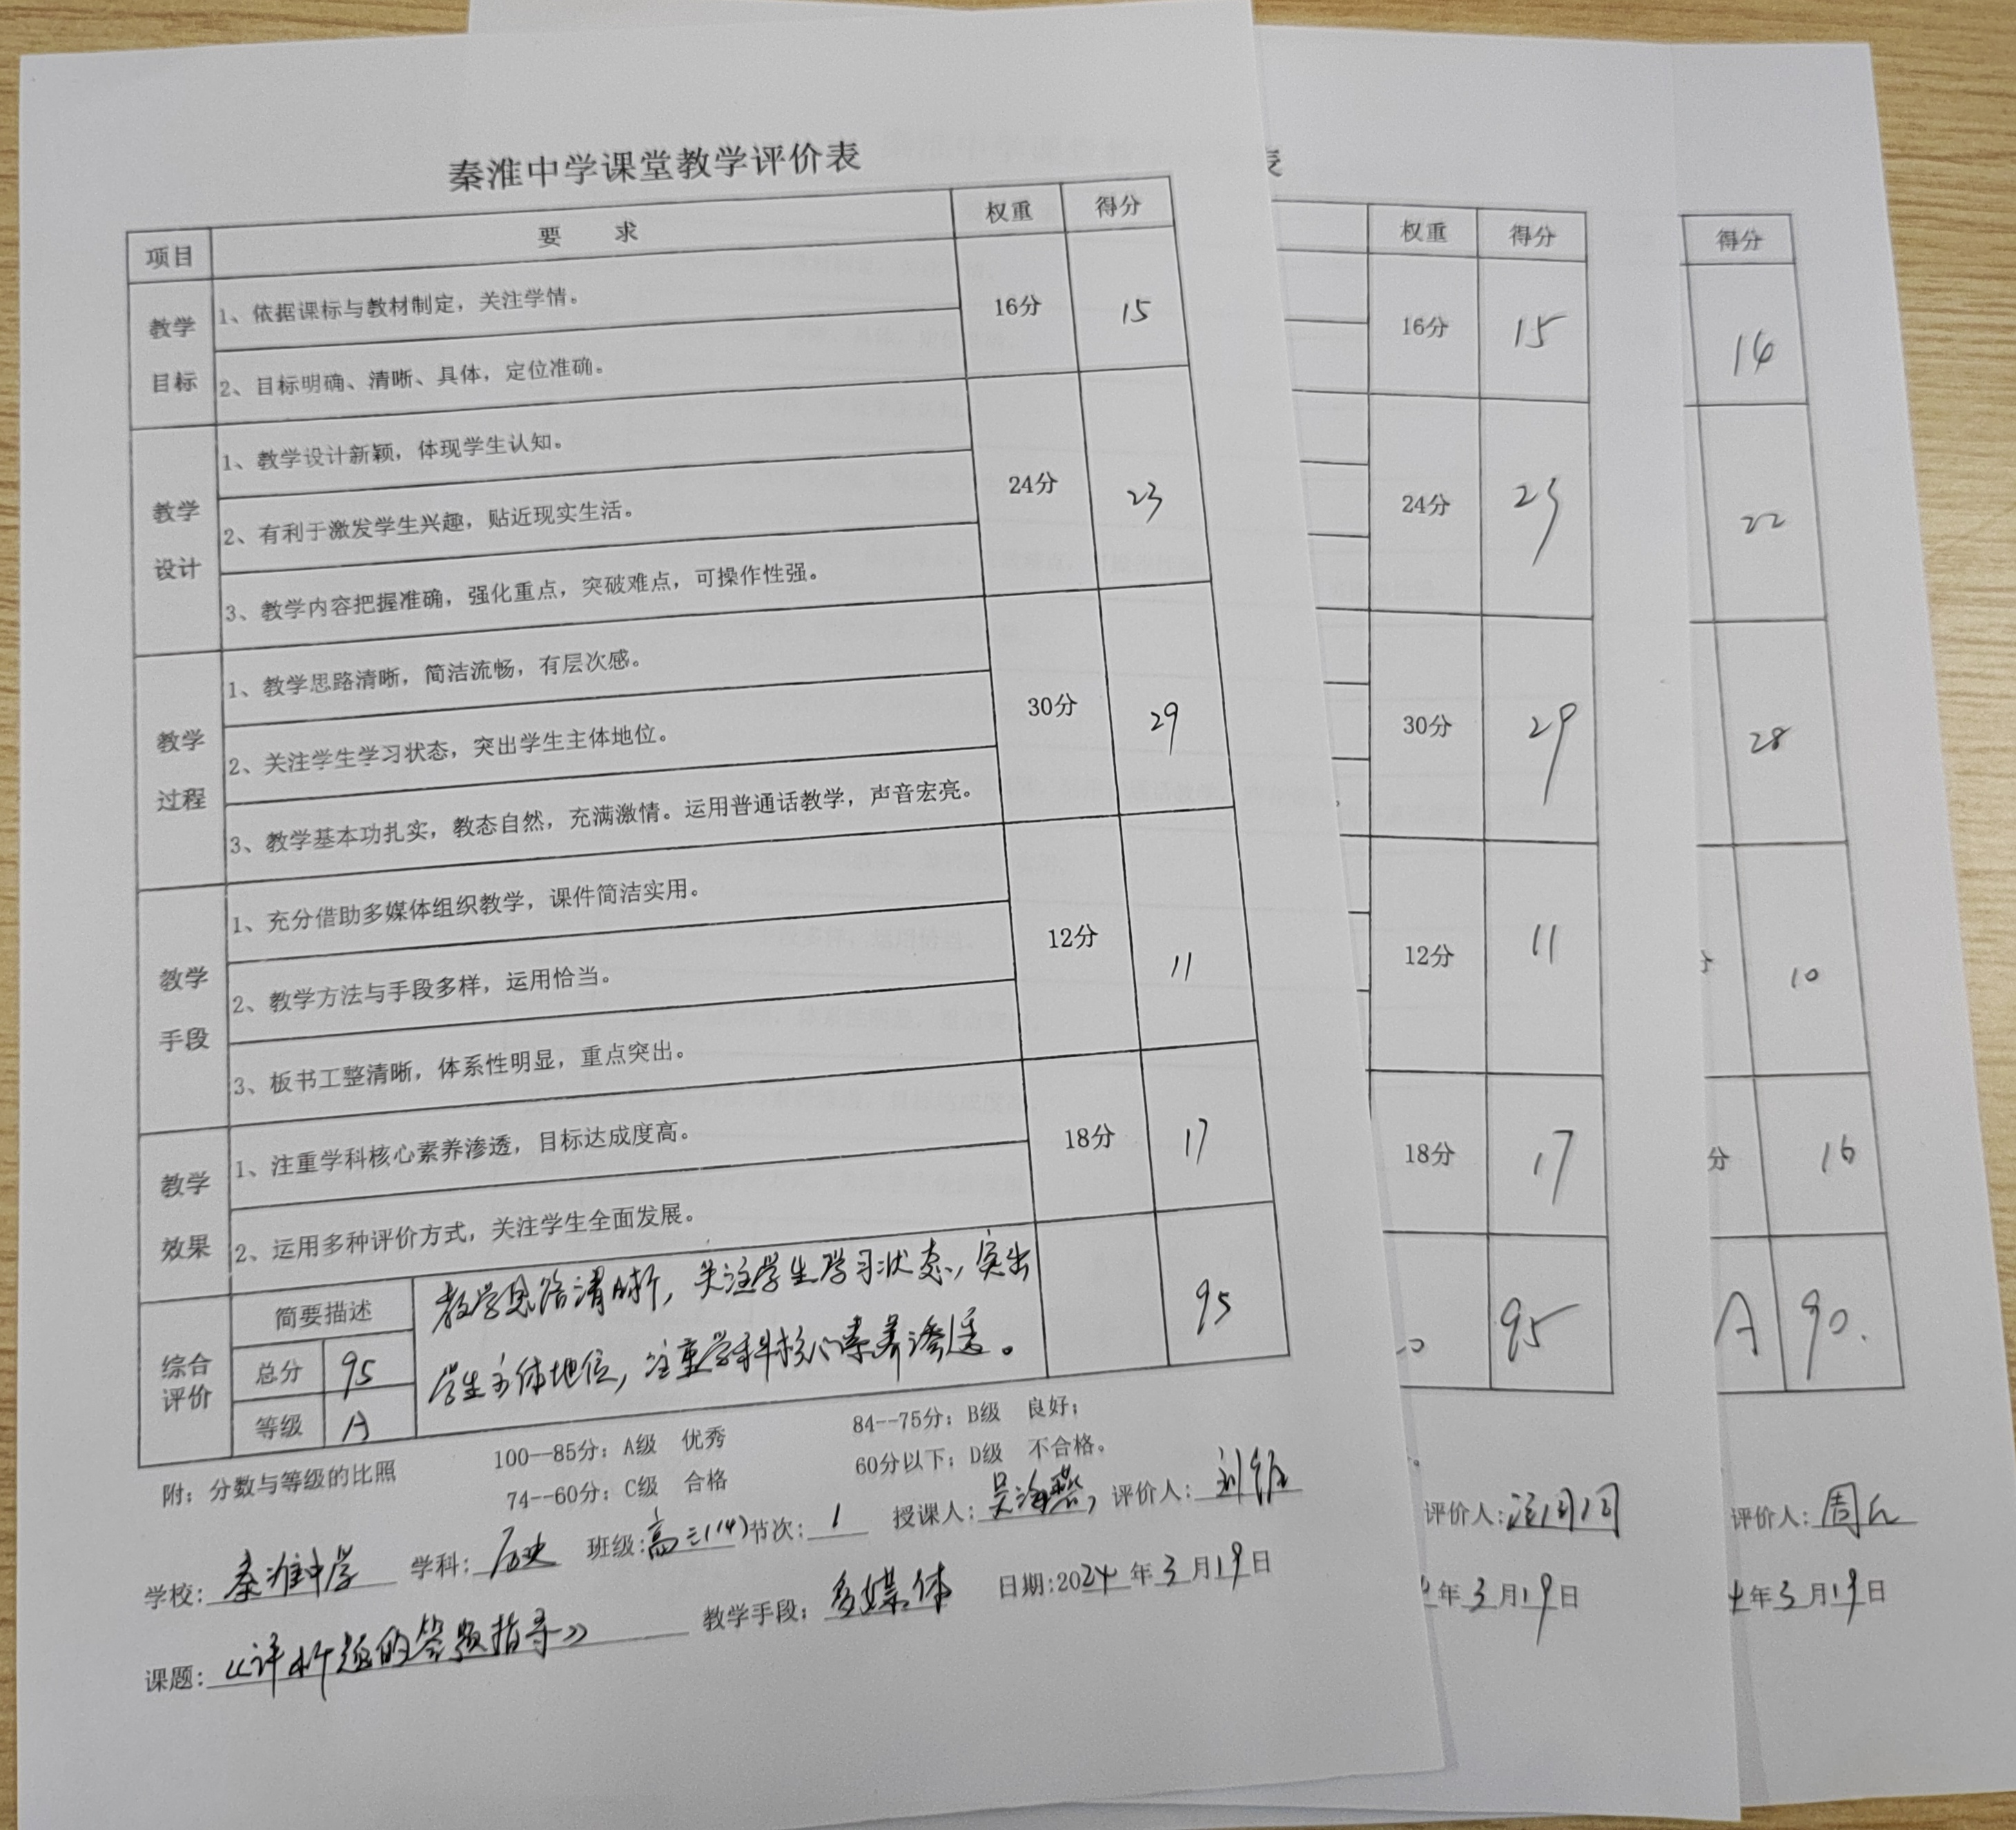 秦淮中学课堂教学评价表
项目 要 求 权重 得分
教学目标 1、依据课标与教材制定，关注学情。 16分 15
2、目标明确、清晰、具体，定位准确。
教学设计 1、教学设计新颖，体现学生认知。 24分 23
2、有利于激发学生兴趣，贴近现实生活。
3、教学内容把握准确，强化重点，突破难点，可操作性强。
教学过程 1、教学思路清晰，简洁流畅，有层次感。 30分 29
2、关注学生学习状态，突出学生主体地位。
3、教学基本功扎实，教态自然，充满激情。运用普通话教学，声音宏亮。
教学手段 1、充分借助多媒体组织教学，课件简洁实用。 12分 11
2、教学方法与手段多样，运用恰当。
3、板书工整清晰，体系性明显，重点突出。
教学效果 1、注重学科核心素养渗透，目标达成度高。 18分 17
2、运用多种评价方式，关注学生全面发展。
综合评价 简要描述 教学思路清晰，关注学生学习状态，突出
学生主体地位，注重学科核心素养渗透。 95
总分 95
等级 A
附：分数与等级的比照 100--85分：A级 优秀 84--75分：B级 良好；
74--60分：C级 合格 60分以下：D级 不合格。
学校：秦淮中学 学科：历史 班级：高三(14) 节次：1 授课人：吴海燕 评价人：刘
课题：《评析题的答题指导》 教学手段：多媒体 日期:2024年3月19日
表
权重 得分
16分 15
24分 23
30分 29
12分 11
18分 17
95
评价人：
年3月19日
得分
14
22
28
10
分 16
A 90.
评价人：周
年3月19日